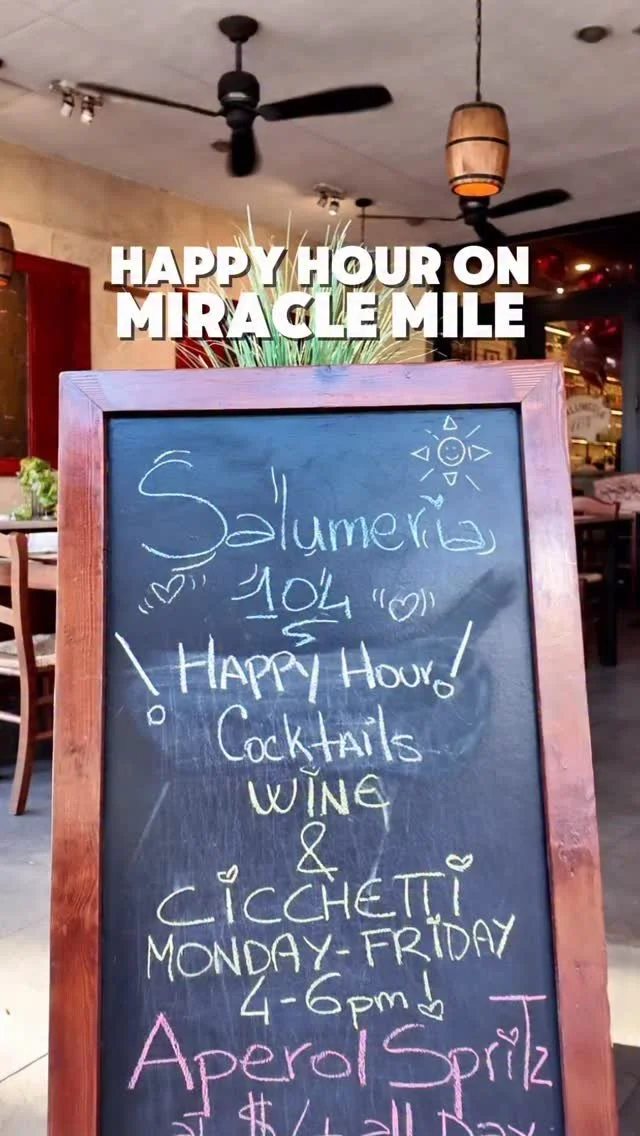 HAPPY HOUR ON
MIRACLE MILE
Salumeria
104
! HAPPY HOUR!
COCKTAILS
WINE
&
CICCHETTI
MONDAY-FRIDAY
4-6pm!
Aperol Spritz
all Day